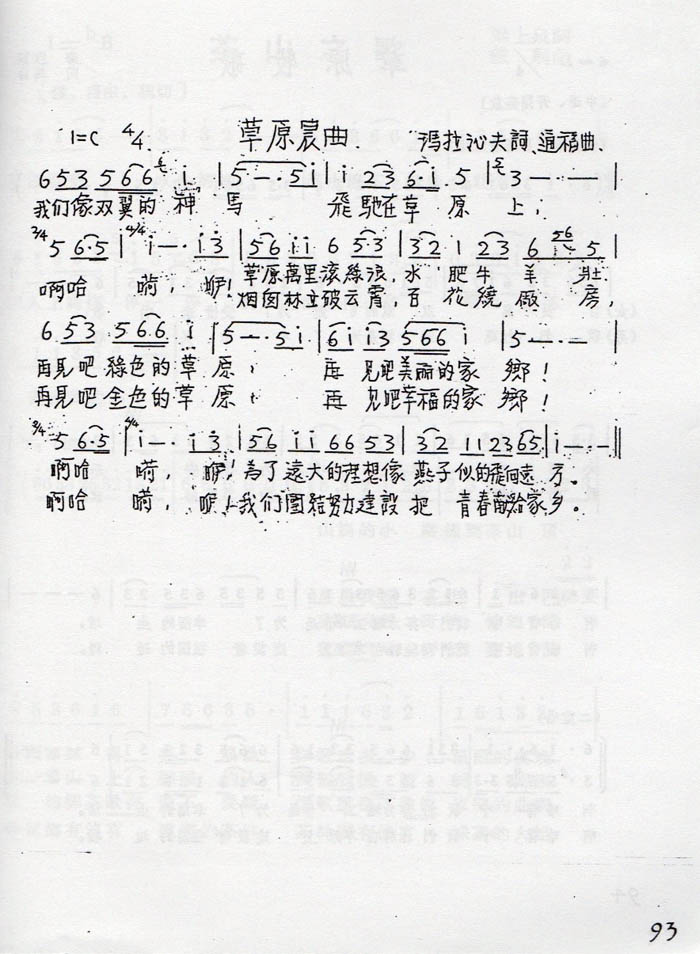 1=C 4/4 草原晨曲 瑪拉沁夫詞、通福曲.
6 5 3 5 6 6 i | 5 - · 5 i | i 2 3 6·i 5 | 3 - - - |
我们像双翼的神馬 飛馳在草原上,
3/4 5 6·5 | 4/4 i - · i 3 | 5 6 i i 6 5·3 | 3 2 1 2 3 6 56 5 |
啊哈 嗬, 咿! 草原萬里滚綠浪,水肥牛羊壯
烟囱林立破云霄,百花繞廠房,
6 5 3 5 6·6 i | 5 - · 5 i | 6 i i 3 5 6 6 i | 5 - - - |
再見吧綠色的草原, 再見吧美丽的家鄉!
再見吧金色的草原, 再見吧幸福的家鄉!
3/4 5 6·5 | 4/4 i - · i 3 | 5 6 i i 6 6 5 3 | 3 2 1 1 2 3 6 5 | i - - - ||
啊哈 嗬, 咿! 為了遠大的理想像燕子似的飛向遠方。
啊哈 嗬, 咿! 我们團結努力建設把青春獻給家乡。
93